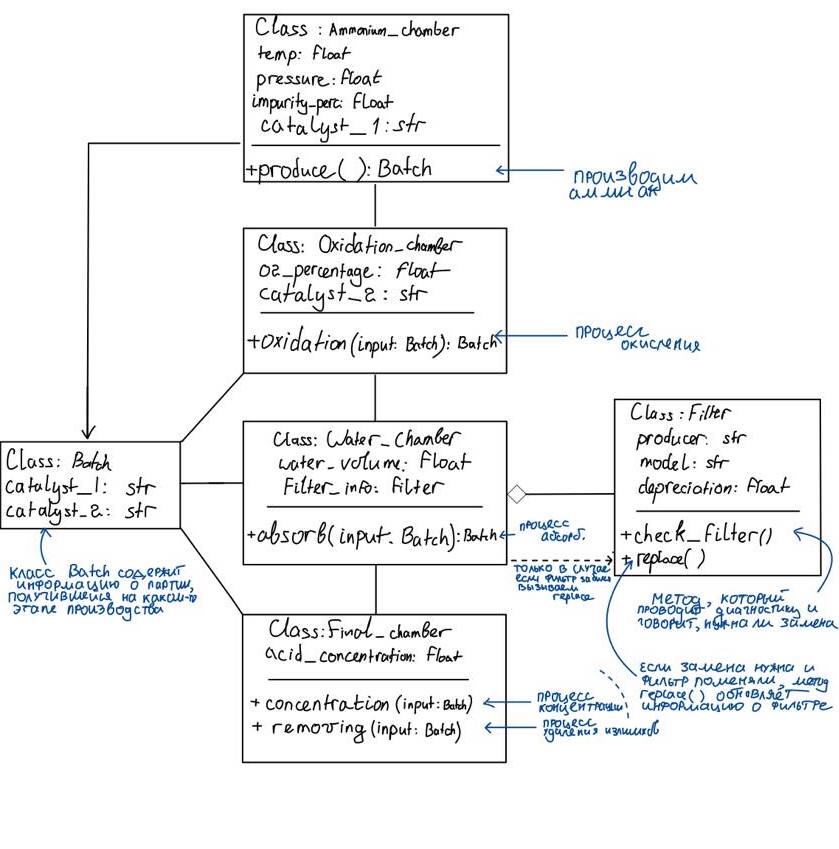 Class : Ammonium_chamber
temp: Float
pressure: Float
impurity-perc: Float
catalyst_1: str
+produce( ): Batch
производим
аммиак
Class: Oxidation_chamber
O2_percentage: Float
catalyst_2: str
+Oxidation(input: Batch): Batch
процесс
окисления
Class: Batch
catalyst_1: str
catalyst_2: str
класс Batch содержит
информацию о партии,
получившейся на каком-то
этапе производства
Class: Water_Chamber
water_volume: Float
Filter_info: Filter
+absorb(input: Batch): Batch
процесс
абсорб.
Class: Filter
producer: str
model: str
depreciation: Float
+check_Filter()
+replace( )
только в случае
если фильтр
вызываем
replace
метод, который
проводит диагностику и
говорит, нужна ли замена
если замена нужна и
фильтр поменяли, метод
replace() обновляет
информацию о фильтре
Class: Final_chamber
acid_concentration: Float
+ concentration (input: Batch)
+ removing (input: Batch)
процесс
концентрации
процесс
удаления излишков